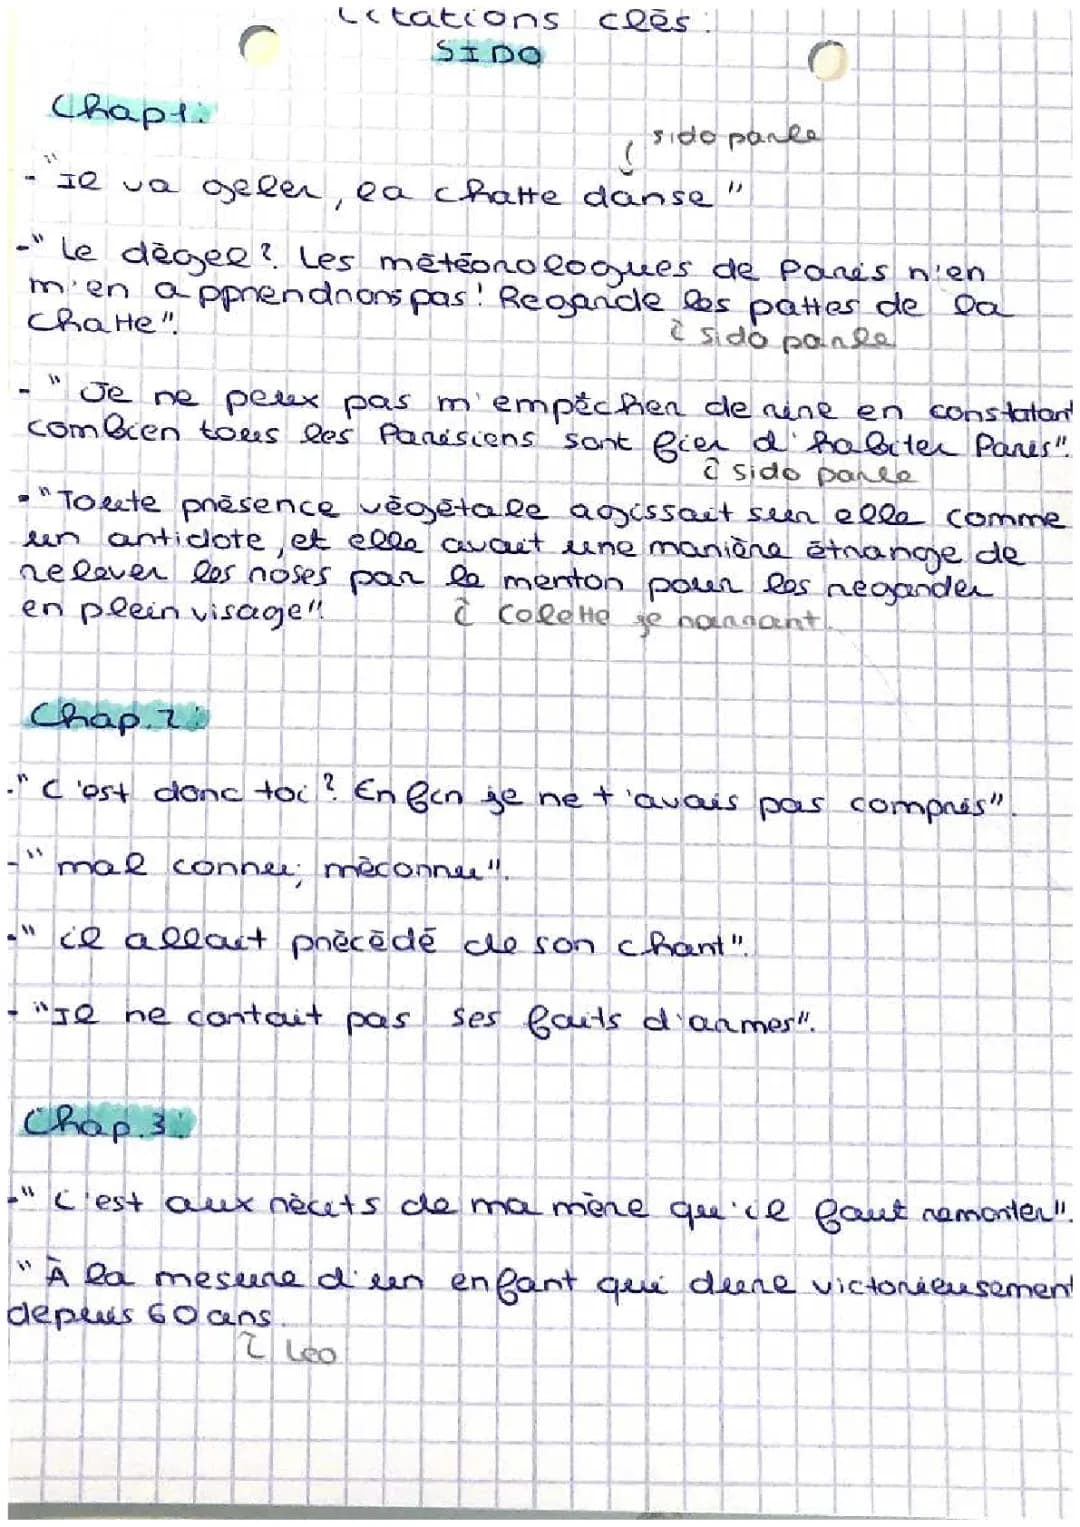 Citations clés:
SIDO
Chap1:
sido parle
- "Il va geler, la chatte danse"
- "Le dégel? Les météorologues de Paris n'en
m'en apprendrons pas! Regarde les pattes de la
chatte".
sido parle
- "Je ne peux pas m'empêcher de rire en constatant
combien tous les Parisiens sont fier d'habiter Paris".
sido parle
- "Toute présence végétale agissait sur elle comme
un antidote, et elle avait une manière étrange de
relever les roses par le menton pour les regarder
en plein visage".
Colette je narrant.
Chap.2:
- "C'est donc toi? Enfin je ne t'avais pas compris".
- "mal connu; méconnu".
- "il allait précédé de son chant".
- "Il ne contait pas ses faits d'armes".
Chap.3:
- "C'est aux récits de ma mère qu'il faut remonter".
"À la mesure d'un enfant qui dure victorieusement
depuis 60 ans.
Leo